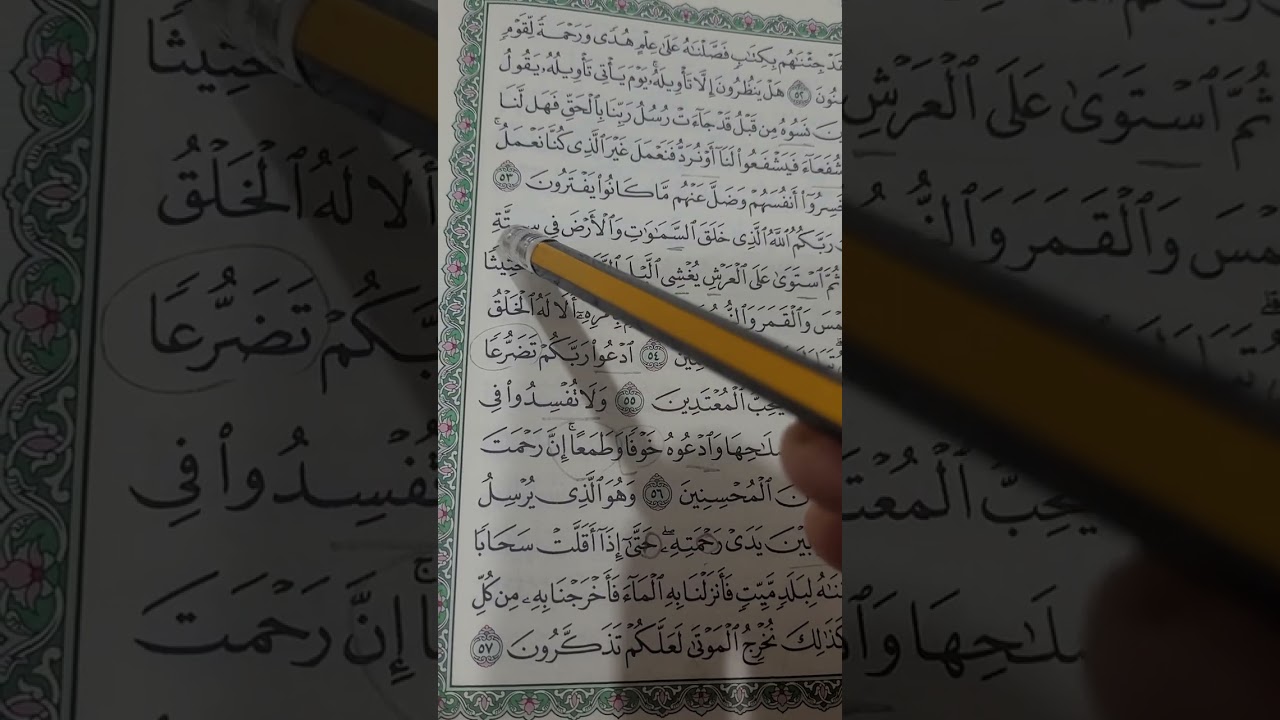 جِئْنَٰهُم بِكِتَٰبٍ فَصَّلْنَٰهُ عَلَىٰ عِلْمٍ هُدًى وَرَحْمَةً لِّقَوْمٍ
٥٢ هَلْ يَنظُرُونَ إِلَّا تَأْوِيلَهُۥۚ يَوْمَ يَأْتِى تَأْوِيلُهُۥ يَقُولُ
نَسُوهُ مِن قَبْلُ قَدْ جَآءَتْ رُسُلُ رَبِّنَا بِٱلْحَقِّ فَهَل لَّنَا
شُفَعَآءَ فَيَشْفَعُوا۟ لَنَآ أَوْ نُرَدُّ فَنَعْمَلَ غَيْرَ ٱلَّذِى كُنَّا نَعْمَلُۚ
خَسِرُوٓا۟ أَنفُسَهُمْ وَضَلَّ عَنْهُم مَّا كَانُوا۟ يَفْتَرُونَ ٥٣
رَبَّكُمُ ٱللَّهُ ٱلَّذِى خَلَقَ ٱلسَّمَٰوَٰتِ وَٱلْأَرْضَ فِى سِتَّةِ
ثُمَّ ٱسْتَوَىٰ عَلَى ٱلْعَرْشِ يُغْشِى ٱلَّيْلَ حَثِيثًا
وَٱلْقَمَرَ أَلَا لَهُ ٱلْخَلْقُ
٥٤ ٱدْعُوا۟ رَبَّكُمْ تَضَرُّعًا
يُحِبُّ ٱلْمُعْتَدِينَ ٥٥ وَلَا تُفْسِدُوا۟ فِى
وَٱدْعُوهُ خَوْفًا وَطَمَعًاۚ إِنَّ رَحْمَتَ
ٱلْمُحْسِنِينَ ٥٦ وَهُوَ ٱلَّذِى يُرْسِلُ
بَيْنَ يَدَىْ رَحْمَتِهِۦۖ حَتَّىٰٓ إِذَآ أَقَلَّتْ سَحَابًا
لِبَلَدٍ مَّيِّتٍ فَأَنزَلْنَا بِهِ ٱلْمَآءَ فَأَخْرَجْنَا بِهِۦ مِن كُلِّ
كَذَٰلِكَ نُخْرِجُ ٱلْمَوْتَىٰ لَعَلَّكُمْ تَذَكَّرُونَ ٥٧